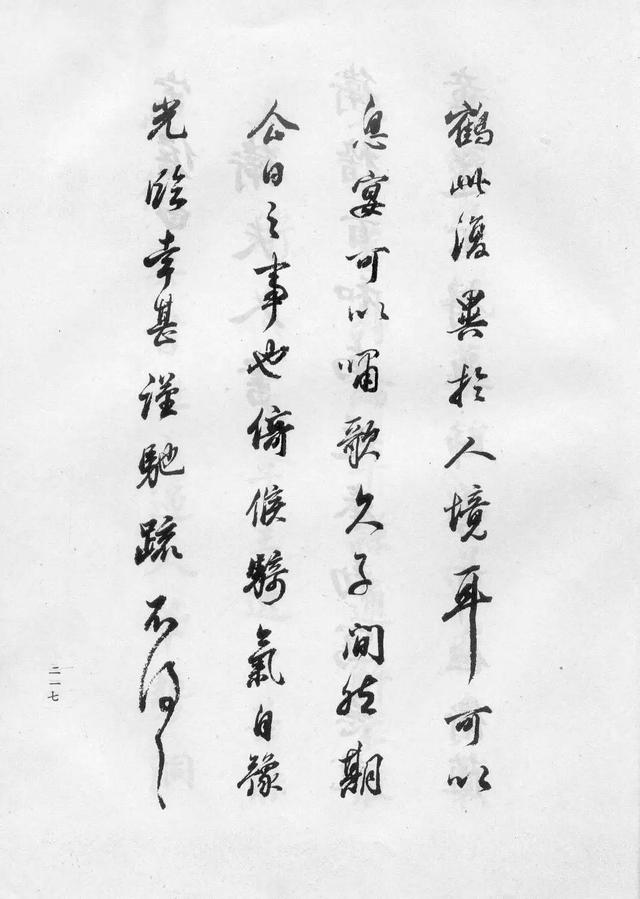 鶴此復異於人境耳可以
息宴可以嘯歌久子間然期
今日之事也倚候驂氣自豫
光臨幸甚謹馳疏不得
二一七